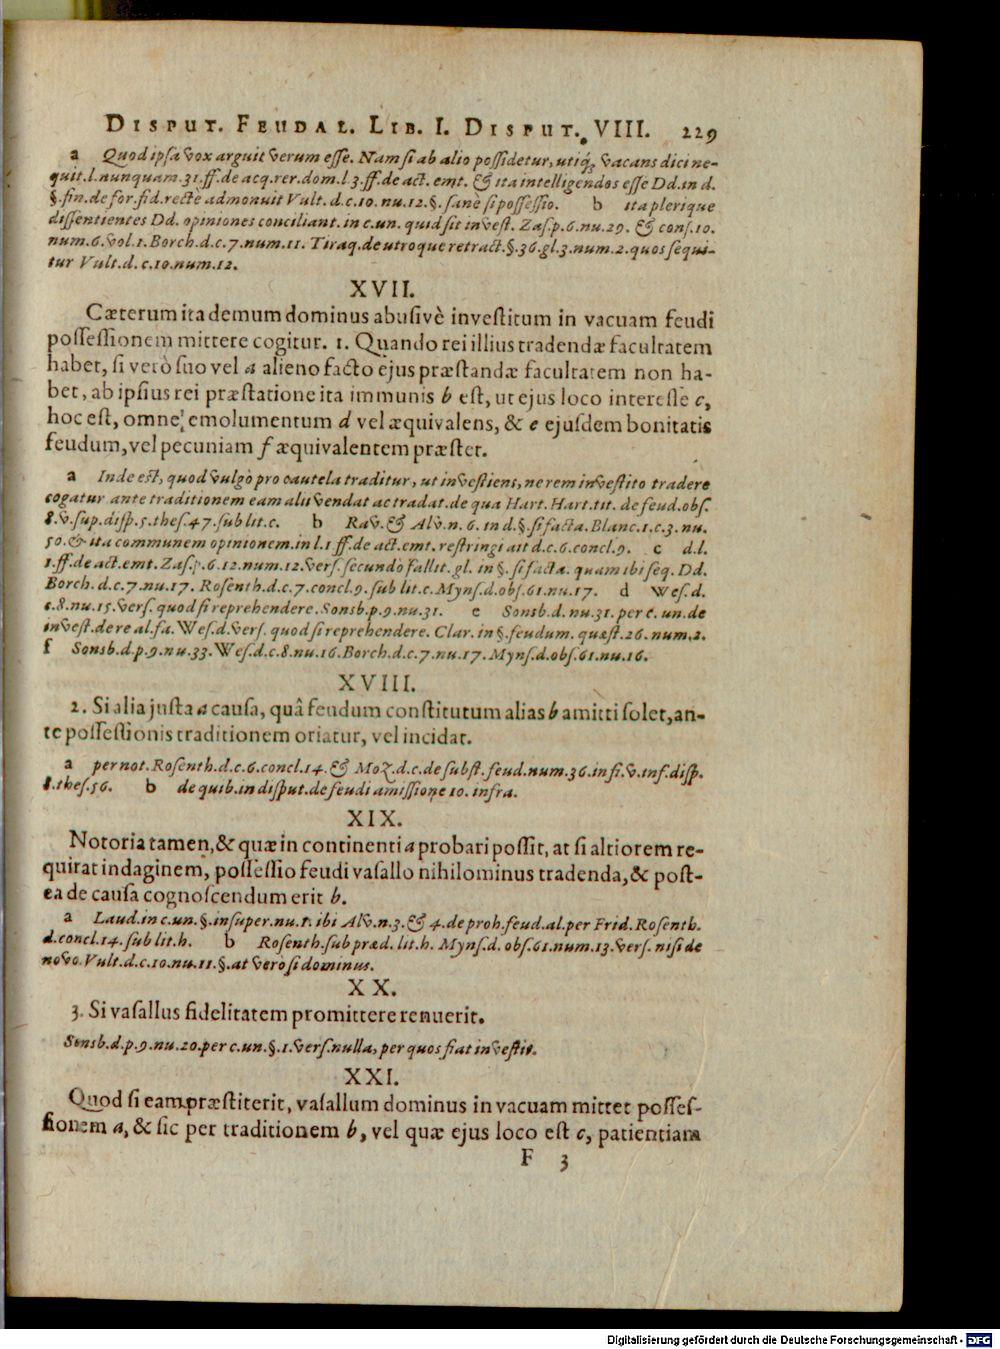 DISPUT. FEUDAL. LIB. I. DISPUT. VIII. 229
a Quod ipsa vox arguit verum esse. Nam si ab alio possidetur, utiq; vacans dici ne-
quit. l. nunquam. 31. ff. de acq. rer. dom. l. 3. ff. de act. emt. & ita intelligendos esse Dd. in d.
§. fin. de for. fid. rectè admonuit Vult. d. c. 10. nu. 12. §. sanè si possessio. b ita plerique
dissentientes Dd. opiniones conciliant. in c. un. quid sit invest. Zas. p. 6. nu. 29. & cons. 10.
num. 6. vol. 1. Borch. d. c. 7. num. 11. Tiraq. de utroque retract. §. 36. gl. 3. num. 2. quos sequi-
tur Vult. d. c. 10. num. 12.
XVII.
Cæterum ita demum dominus abusivè investitum in vacuam feudi
possessionem mittere cogitur. 1. Quando rei illius tradendæ facultatem
habet, si verò suo vel a alieno facto ejus præstandæ facultatem non ha-
bet, ab ipsius rei præstatione ita immunis b est, ut ejus loco interesse c,
hoc est, omne emolumentum d vel æquivalens, & e ejusdem bonitatis
feudum, vel pecuniam f æquivalentem præstet.
a Inde est, quod vulgò pro cautela traditur, ut investiens, ne rem investito tradere
cogatur ante traditionem eam alii vendat ac tradat. de qua Hart. Hart. tit. de feud. obs.
8. v. sup. disp. 5. thes. 47. sub lit. c. b Rav. & Alv. n. 6. in d. §. si facta. Blanc. 1. c. 3. nu.
50. & ita communem opinionem. in l. 1. ff. de act. emt. restringi ait d. c. 6. concl. 9. c d. l.
1. ff. de act. emt. Zas. p. 6. 12. num. 12. vers. secundò fallit. gl. in §. si facta. quam ibi seq. Dd.
Borch. d. c. 7. nu. 17. Rosenth. d. c. 7. concl. 9. sub lit. c. Myns. d. obs. 61. nu. 17. d Wes. d.
c. 8. nu. 15. vers. quod si reprehendere. Sonsb. p. 9. nu. 31. e Sonsb. d. nu. 31. per c. un. de
invest. de re al. fa. Wes. d. vers. quod si reprehendere. Clar. in §. feudum. quæst. 26. num. 2.
f Sonsb. d. p. 9. nu. 33. Wes. d. c. 8. nu. 16. Borch. d. c. 7. nu. 17. Myns. d. obs. 61. nu. 16.
XVIII.
2. Si alia justa a causa, quâ feudum constitutum alias b amitti solet, an-
te possessionis traditionem oriatur, vel incidat.
a per not. Rosenth. d. c. 6. concl. 14. & Moz. d. c. de subst. feud. num. 36. in fi. v. inf. disp.
8. thes. 56. b de quib. in disput. de feudi amissione 10. infra.
XIX.
Notoria tamen, & quæ in continenti a probari possit, at si altiorem re-
quirat indaginem, possessio feudi vasallo nihilominus tradenda, & post-
ea de causa cognoscendum erit b.
a Laud. in c. un. §. insuper. nu. 1. ibi Alv. n. 3. & 4. de proh. feud. al. per Frid. Rosenth.
d. concl. 14. sub lit. h. b Rosenth. sub præd. lit. h. Myns. d. obs. 61. num. 13. vers. nisi de
novo. Vult. d. c. 10. nu. 11. §. at verò si dominus.
XX.
3. Si vasallus fidelitatem promittere renuerit.
Sonsb. d. p. 9. nu. 20. per c. un. §. 1. vers. nulla, per quos fiat investit.
XXI.
Quod si eam præstiterit, vasallum dominus in vacuam mittet posses-
sionem a, & sic per traditionem b, vel quæ ejus loco est c, patientiam
F 3
Digitalisierung gefördert durch die Deutsche Forschungsgemeinschaft - DFG